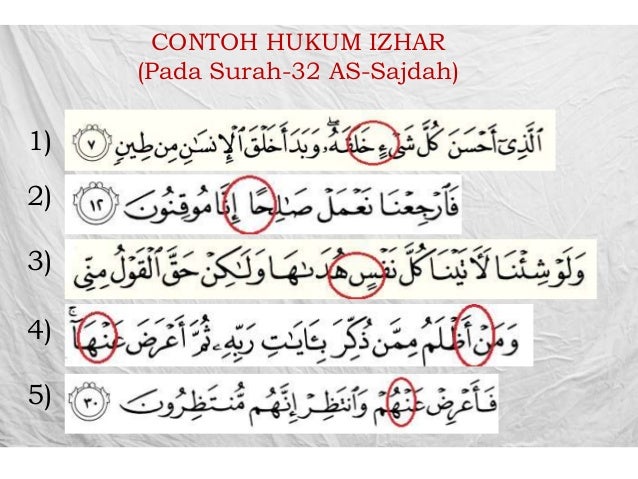 CONTOH HUKUM IZHAR
(Pada Surah-32 AS-Sajdah)
1) ٱلَّذِىٓ أَحْسَنَ كُلَّ شَىْءٍ خَلَقَهُۥ ۖ وَبَدَأَ خَلْقَ ٱلْإِنسَٰنِ مِن طِينٍ ٧
2) فَٱرْجِعْنَا نَعْمَلْ صَٰلِحًا إِنَّا مُوقِنُونَ ١٢
3) وَلَوْ شِئْنَا لَءَاتَيْنَا كُلَّ نَفْسٍ هُدَىٰهَا وَلَٰكِنْ حَقَّ ٱلْقَوْلُ مِنِّى
4) وَمَنْ أَظْلَمُ مِمَّن ذُكِّرَ بِـَٔايَٰتِ رَبِّهِۦ ثُمَّ أَعْرَضَ عَنْهَآ ۚ
5) فَأَعْرِضْ عَنْهُمْ وَٱنتَظِرْ إِنَّهُم مُّنتَظِرُونَ ٣٠